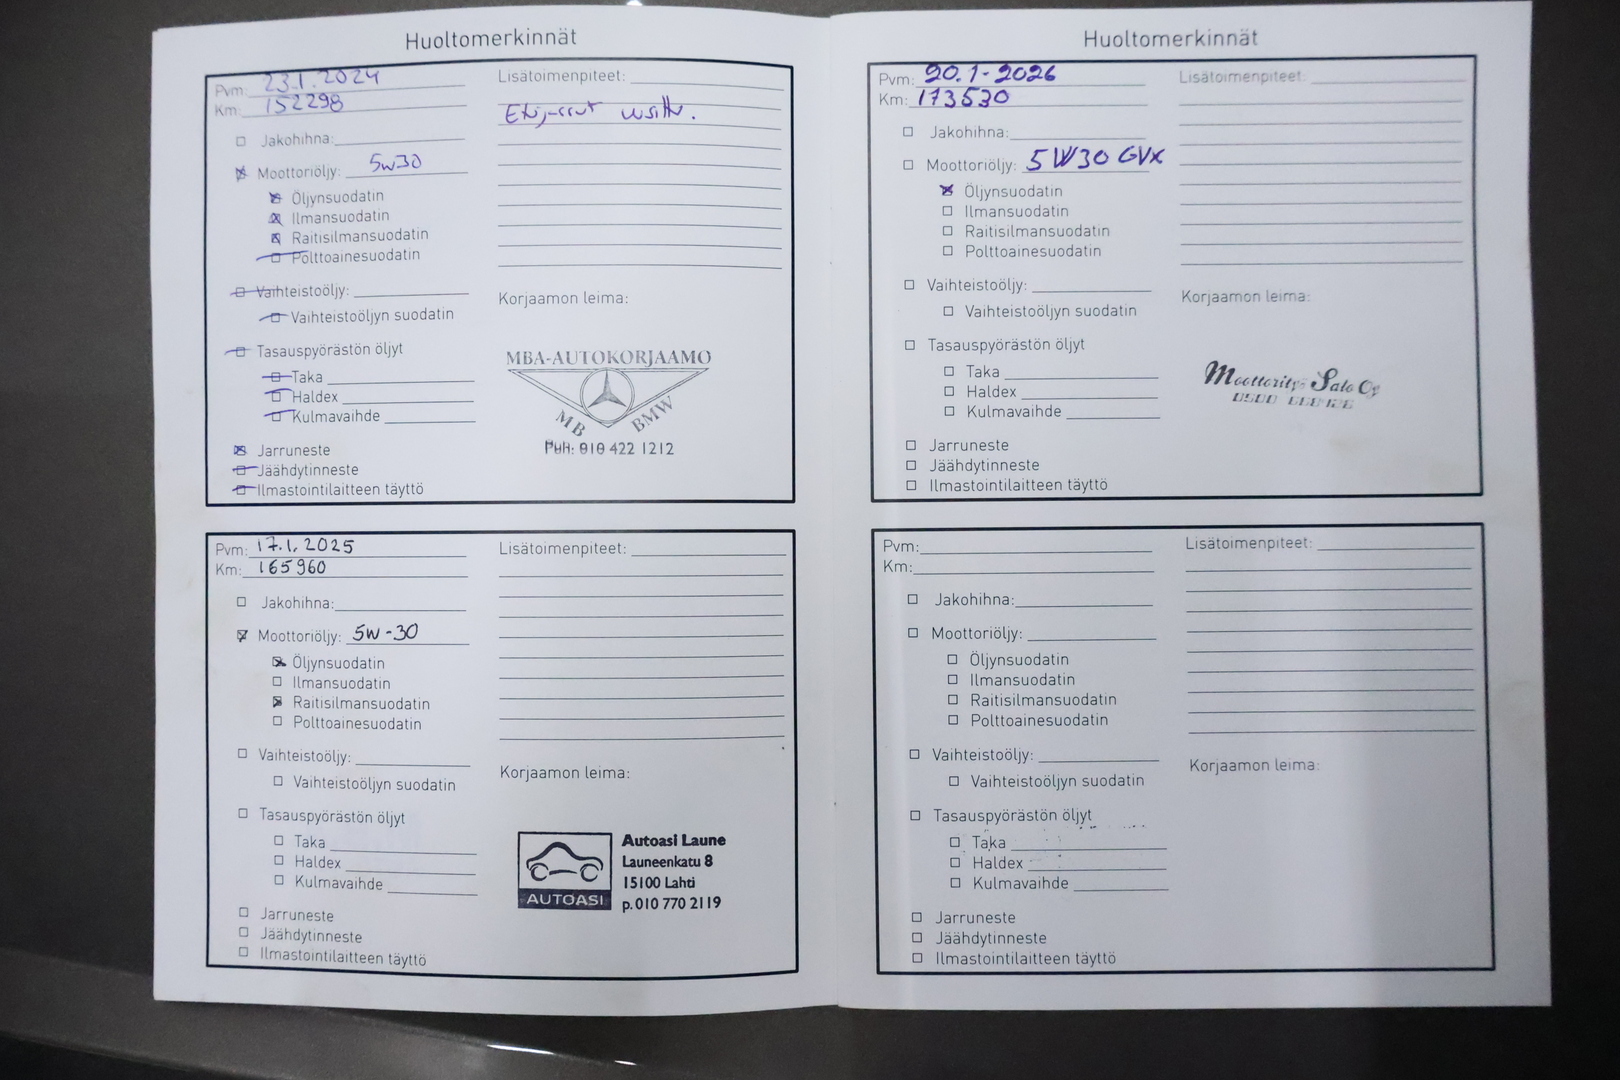 Huoltomerkinnät
Pvm: 23.1.2024
Km: 152298
Jakohihna:
Moottoriöljy: 5w30
Öljynsuodatin
Ilmansuodatin
Raitisilmansuodatin
Polttoainesuodatin
Vaihteistoöljy:
Vaihteistoöljyn suodatin
Tasauspyörästön öljyt
Taka
Haldex
Kulmavaihde
Jarruneste
Jäähdytinneste
Ilmastointilaitteen täyttö
Lisätoimenpiteet:
Korjaamon leima:
MBA-AUTOKORJAAMO
MB BMW
PUH: 010 422 1212
Pvm: 17.1.2025
Km: 165960
Jakohihna:
Moottoriöljy: 5W-30
Öljynsuodatin
Ilmansuodatin
Raitisilmansuodatin
Polttoainesuodatin
Vaihteistoöljy:
Vaihteistoöljyn suodatin
Tasauspyörästön öljyt
Taka
Haldex
Kulmavaihde
Jarruneste
Jäähdytinneste
Ilmastointilaitteen täyttö
Lisätoimenpiteet:
Korjaamon leima:
AUTOASI
Autoasi Laune
Launeenkatu 8
15100 Lahti
p. 010 770 2119
Huoltomerkinnät
Pvm: 20.1-2026
Km: 173530
Jakohihna:
Moottoriöljy: 5W30 GVX
Öljynsuodatin
Ilmansuodatin
Raitisilmansuodatin
Polttoainesuodatin
Vaihteistoöljy:
Vaihteistoöljyn suodatin
Tasauspyörästön öljyt
Taka
Haldex
Kulmavaihde
Jarruneste
Jäähdytinneste
Ilmastointilaitteen täyttö
Lisätoimenpiteet:
Korjaamon leima:
Salo Oy
Pvm:
Km:
Jakohihna:
Moottoriöljy:
Öljynsuodatin
Ilmansuodatin
Raitisilmansuodatin
Polttoainesuodatin
Vaihteistoöljy:
Vaihteistoöljyn suodatin
Tasauspyörästön öljyt
Taka
Haldex
Kulmavaihde
Jarruneste
Jäähdytinneste
Ilmastointilaitteen täyttö
Lisätoimenpiteet:
Korjaamon leima: